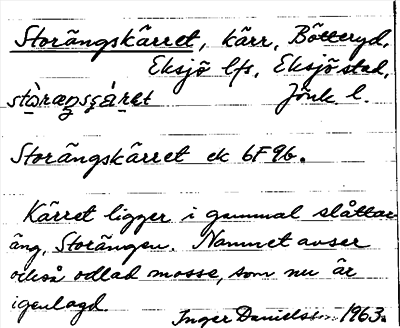 Storängskärret, kärr, Bötteryd,
Eksjö lfs, Eksjö stad,
Jönk. l.
Storängskärret ek 6F9b.
Kärret ligger i gammal slåtter
äng, Storängen. Namnet avser
också odlad mosse, som nu är
igenlagd.
Inger Danielsson 1963.